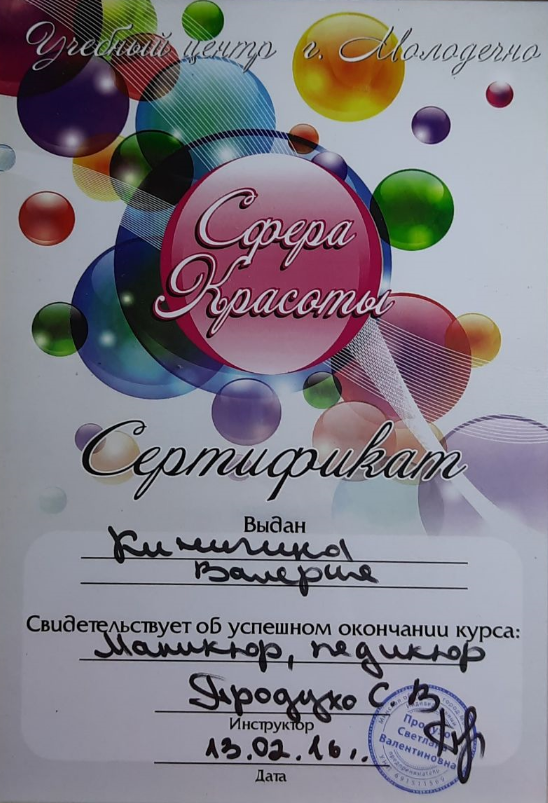 Учебный центр г. Молодечно
Сфера
Красоты
Сертификат
Выдан
Валерия
Свидетельствует об успешном окончании курса:
Маникюр, педикюр
Продухо С В
Инструктор
13.02.16г.
Дата
Продухо
Светлана
Валентиновна